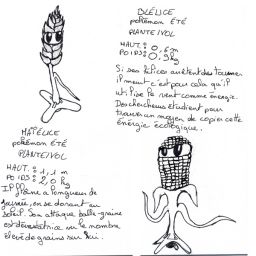 BLÉLICE
pokémon ÉTÉ
PLANTE/VOL
HAUT: 0,6 m
POIDS: 0,9 kg
Si ses hélices arrêtent de tourner
il meurt c'est pour cela qu'il
utilise le vent comme énergie.
Des chercheurs étudient pour
trouver un moyen de copier cette
énergie écologique.
MAÏÉLICE
pokémon ÉTÉ
PLANTE/VOL
HAUT: 1,1 m
POIDS: 2,0 kg
Il graine a longueur de
journée, en se dorant au
soleil. Son attaque balle graine
est dévastatrice vu le nombre
élevé de grains sur lui.